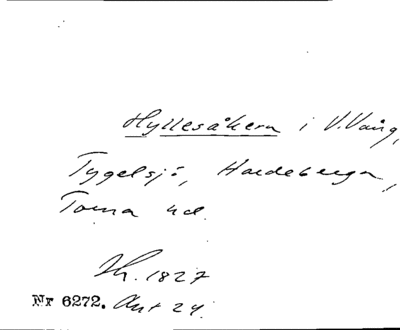 Hyllesåkern i V. Vång,
Tygelsjö, Hardeberga,
Torna hd.
Th. 1827
Nr 6272. Akt 24.